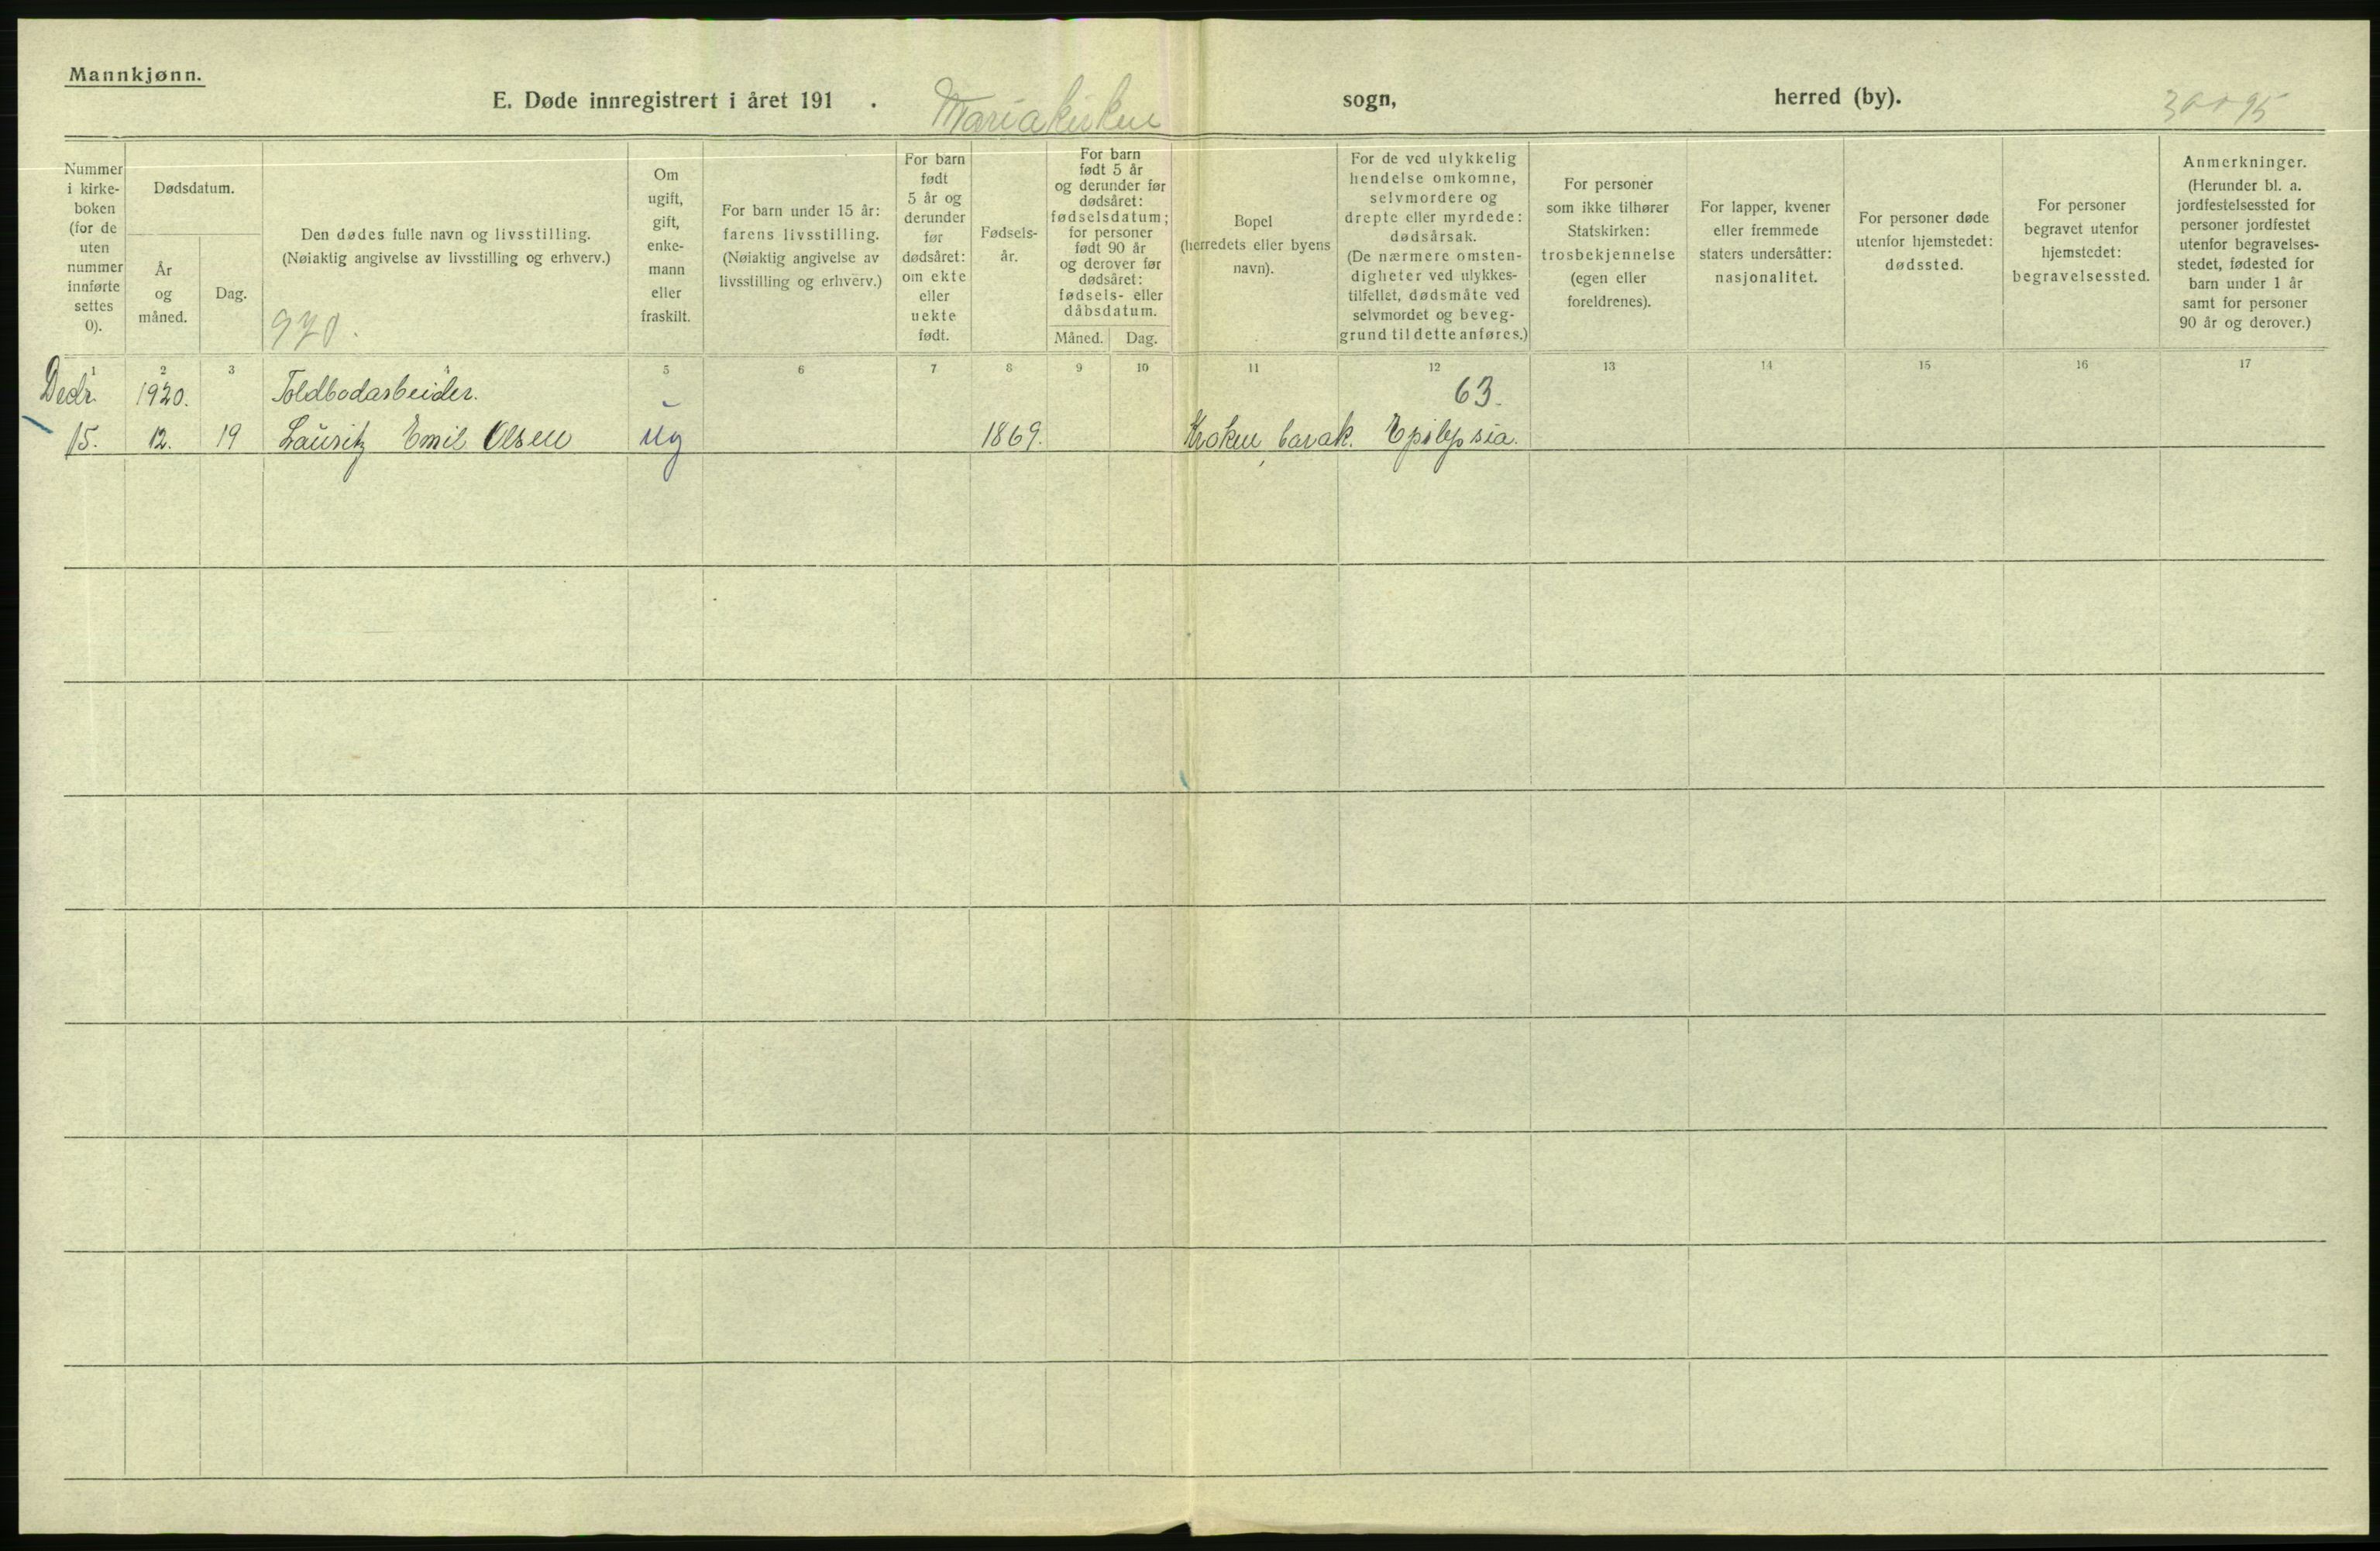 Mannkjønn.
E. Døde innregistrert i året 191 . Mariakirken sogn, herred (by).
Nummer
i kirke-
boken
(for de
uten
nummer
innførte
settes
0).
Dødsdatum.
År
og
måned.
Dag.
Den dødes fulle navn og livsstilling.
(Nøiaktig angivelse av livsstilling og erhverv.)
970.
Om
ugift,
gift,
enke-
mann
eller
fraskilt.
For barn under 15 år:
farens livsstilling.
(Nøiaktig angivelse av
livsstilling og erhverv.)
For barn
født
5 år og
derunder
før
dødsåret:
om ekte
eller
uekte
født.
Fødsels-
år.
For barn
født 5 år
og derunder før
dødsåret:
fødselsdatum;
for personer
født 90 år
og derover før
dødsåret:
fødsels- eller
dåbsdatum.
Måned. Dag.
Bopel
(herredets eller byens
navn).
For de ved ulykkelig
hendelse omkomne,
selvmordere og
drepte eller myrdede:
dødsårsak.
(De nærmere omsten-
digheter ved ulykkes-
tilfellet, dødsmåte ved
selvmordet og beveg-
grund til dette anføres.)
For personer
som ikke tilhører
Statskirken:
trosbekjennelse
(egen eller
foreldrenes).
For lapper, kvener
eller fremmede
staters undersåtter:
nasjonalitet.
For personer døde
utenfor hjemstedet:
dødssted.
For personer
begravet utenfor
hjemstedet:
begravelsessted.
Anmerkninger.
(Herunder bl. a.
jordfestelsessted for
personer jordfestet
utenfor begravelses-
stedet, fødested for
barn under 1 år
samt for personer
90 år og derover.)
1 2 3 4 5 6 7 8 9 10 11 12 13 14 15 16 17
Decbr. 1920. Toldbodarbeider. 63.
15. 12. 19 Lauritz Emil Olsen ug 1869. Kroken barak. Epilepsia.